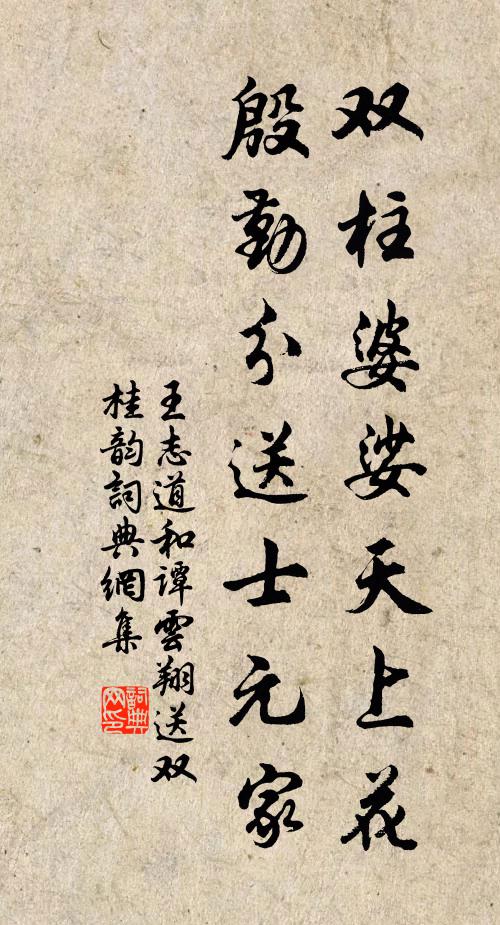 双柱婆娑天上花
殷勤分送士元家
王志道和谭雲翔送双
桂韵詞典網集
詞典網印